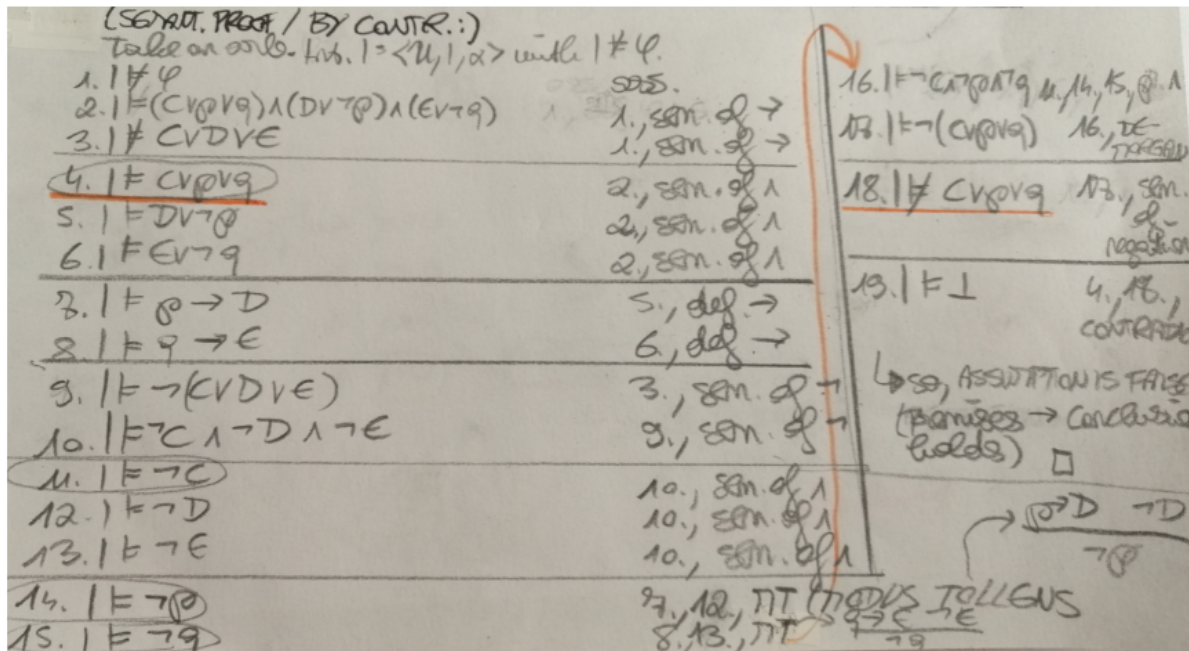 (SEMANT. PROOF / BY CONTR.:)
Take an arb. Int. I = <U, I, α> with I ⊭ φ.
1. I ⊭ φ ass.
2. I ⊨ (C∨p∨q)∧(D∨¬p)∧(E∨¬q) 1., sem. of →
3. I ⊭ C∨D∨E 1., sem. of →
4. I ⊨ C∨p∨q 2., sem. of ∧
5. I ⊨ D∨¬p 2., sem. of ∧
6. I ⊨ E∨¬q 2., sem. of ∧
7. I ⊨ p → D 5., def. →
8. I ⊨ q → E 6., def. →
9. I ⊨ ¬(C∨D∨E) 3., sem. of ¬
10. I ⊨ ¬C ∧ ¬D ∧ ¬E 9., sem. of ¬
11. I ⊨ ¬C 10., sem. of ∧
12. I ⊨ ¬D 10., sem. of ∧
13. I ⊨ ¬E 10., sem. of ∧
14. I ⊨ ¬p 7., 12., MT (MODUS TOLLENS
15. I ⊨ ¬q 8., 13., MT
q→E ¬E
¬q
16. I ⊨ ¬C∧¬p∧¬q 11., 14., 15., ∧
17. I ⊨ ¬(C∨p∨q) 16., DE-
MORGAN
18. I ⊭ C∨p∨q 17., sem.
of
negation
19. I ⊨ ⊥ 4., 18.,
CONTRADIC
↳ so, ASSUMPTION IS FALSE
(Premises → Conclusion
holds) □
p→D ¬D
¬p